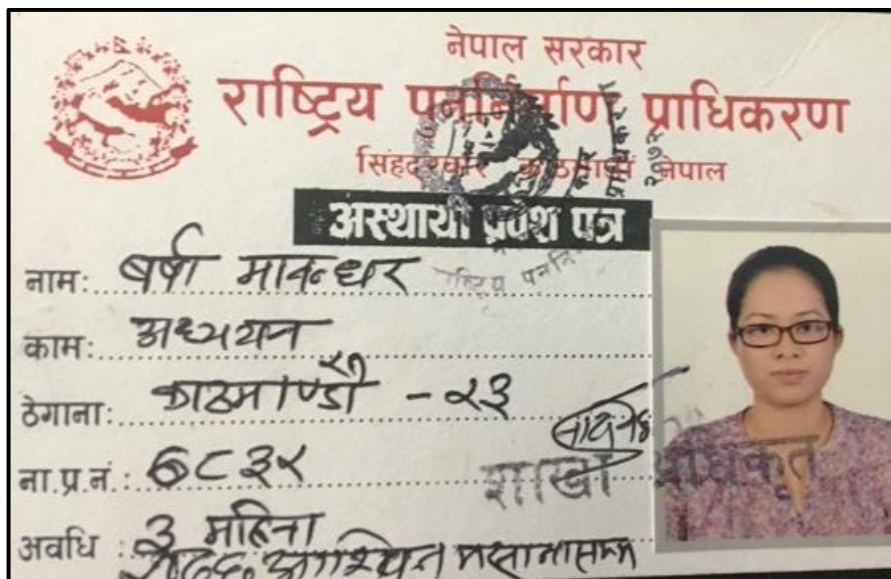 नेपाल सरकार
राष्ट्रिय पुनर्निर्माण प्राधिकरण
सिंहदरबार काठमाडौं नेपाल
अस्थायी प्रवेश पत्र
नाम: बर्षा मानन्धर
काम: अध्ययन
ठेगाना: काठमाण्डौ - २३
ना.प्र.नं.:
शाखा अधिकृत
अवधि : ३ महिना
आश्विन मसान्तसम्म